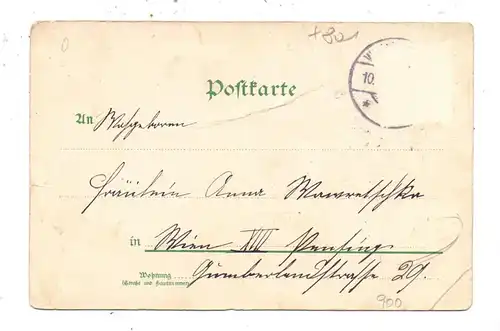 Postkarte
10.
An Wohlgeboren
Fräulein Anna Wawretschka
in Wien XIII Penzing
Wohnung Cumberlandstrasse 29.
(Straße und Hausnummer)
900